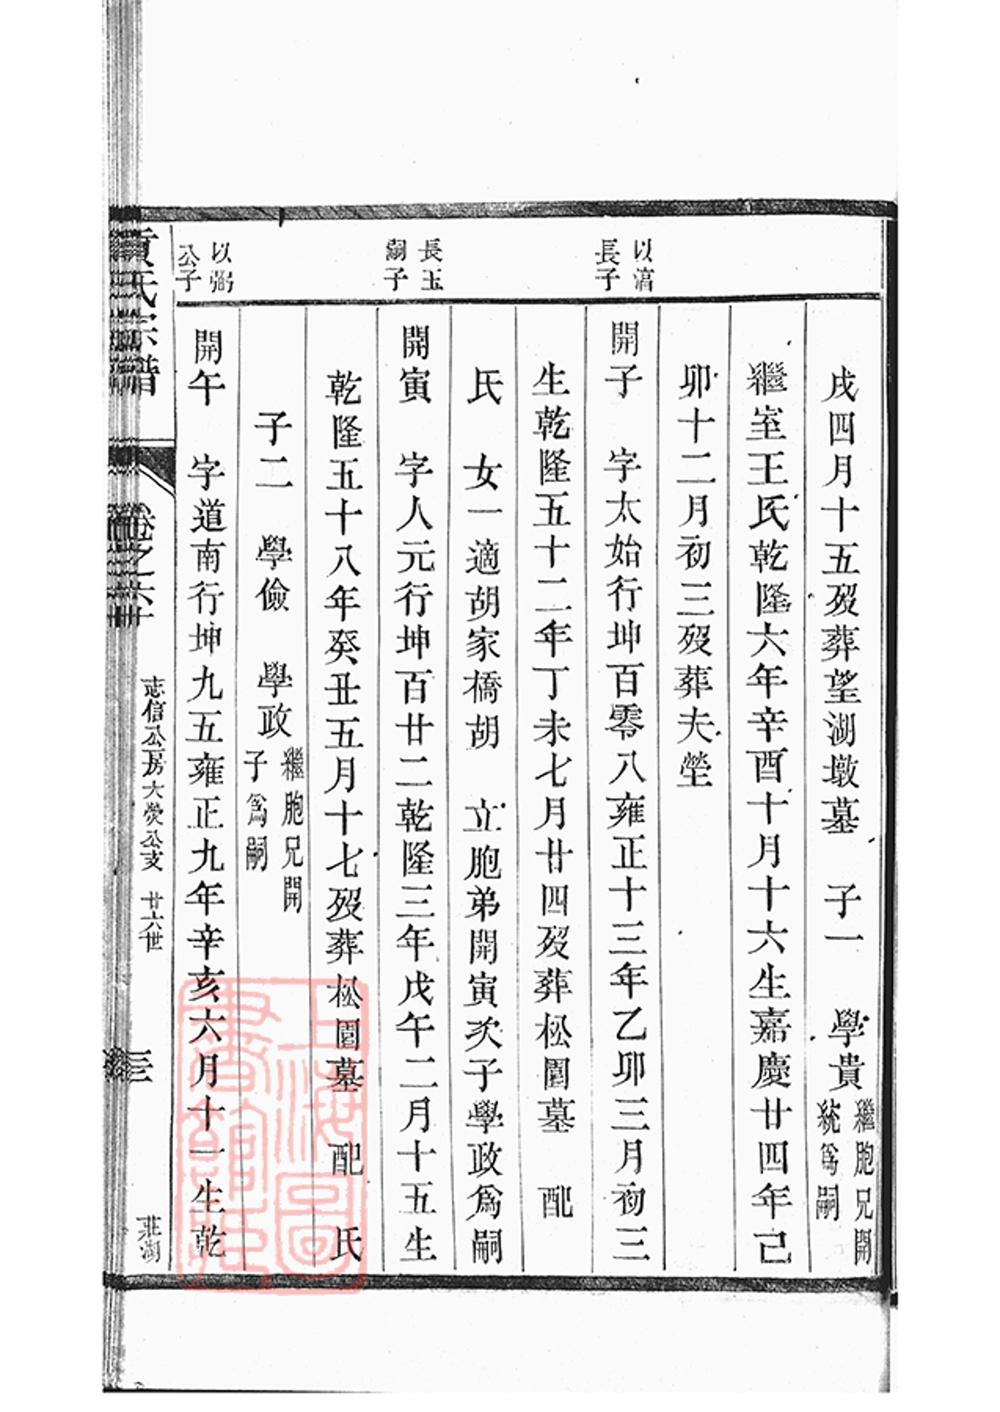 戌四月十五歿葬望湖墩墓　子一　學貴繼胞兄開統爲嗣
繼室王氏乾隆六年辛酉十月十六生嘉慶廿四年己
卯十二月初三歿葬夫塋
以滈長子
開子　字太始行坤百零八雍正十三年乙卯三月初三
生乾隆五十二年丁未七月廿四歿葬松園墓　配
氏　女一適胡家橋胡　立胞弟開寅次子學政爲嗣
長玉嗣子
開寅　字人元行坤百廿二乾隆三年戊午二月十五生
乾隆五十八年癸丑五月十七歿葬松園墓　配　氏
子二　學儉　學政繼胞兄開子爲嗣
以弼公子
開午　字道南行坤九五雍正九年辛亥六月十一生乾
黃氏宗譜
卷之六十
志信公房大熒公支　廿六世
三
莊湖
上海圖書館藏